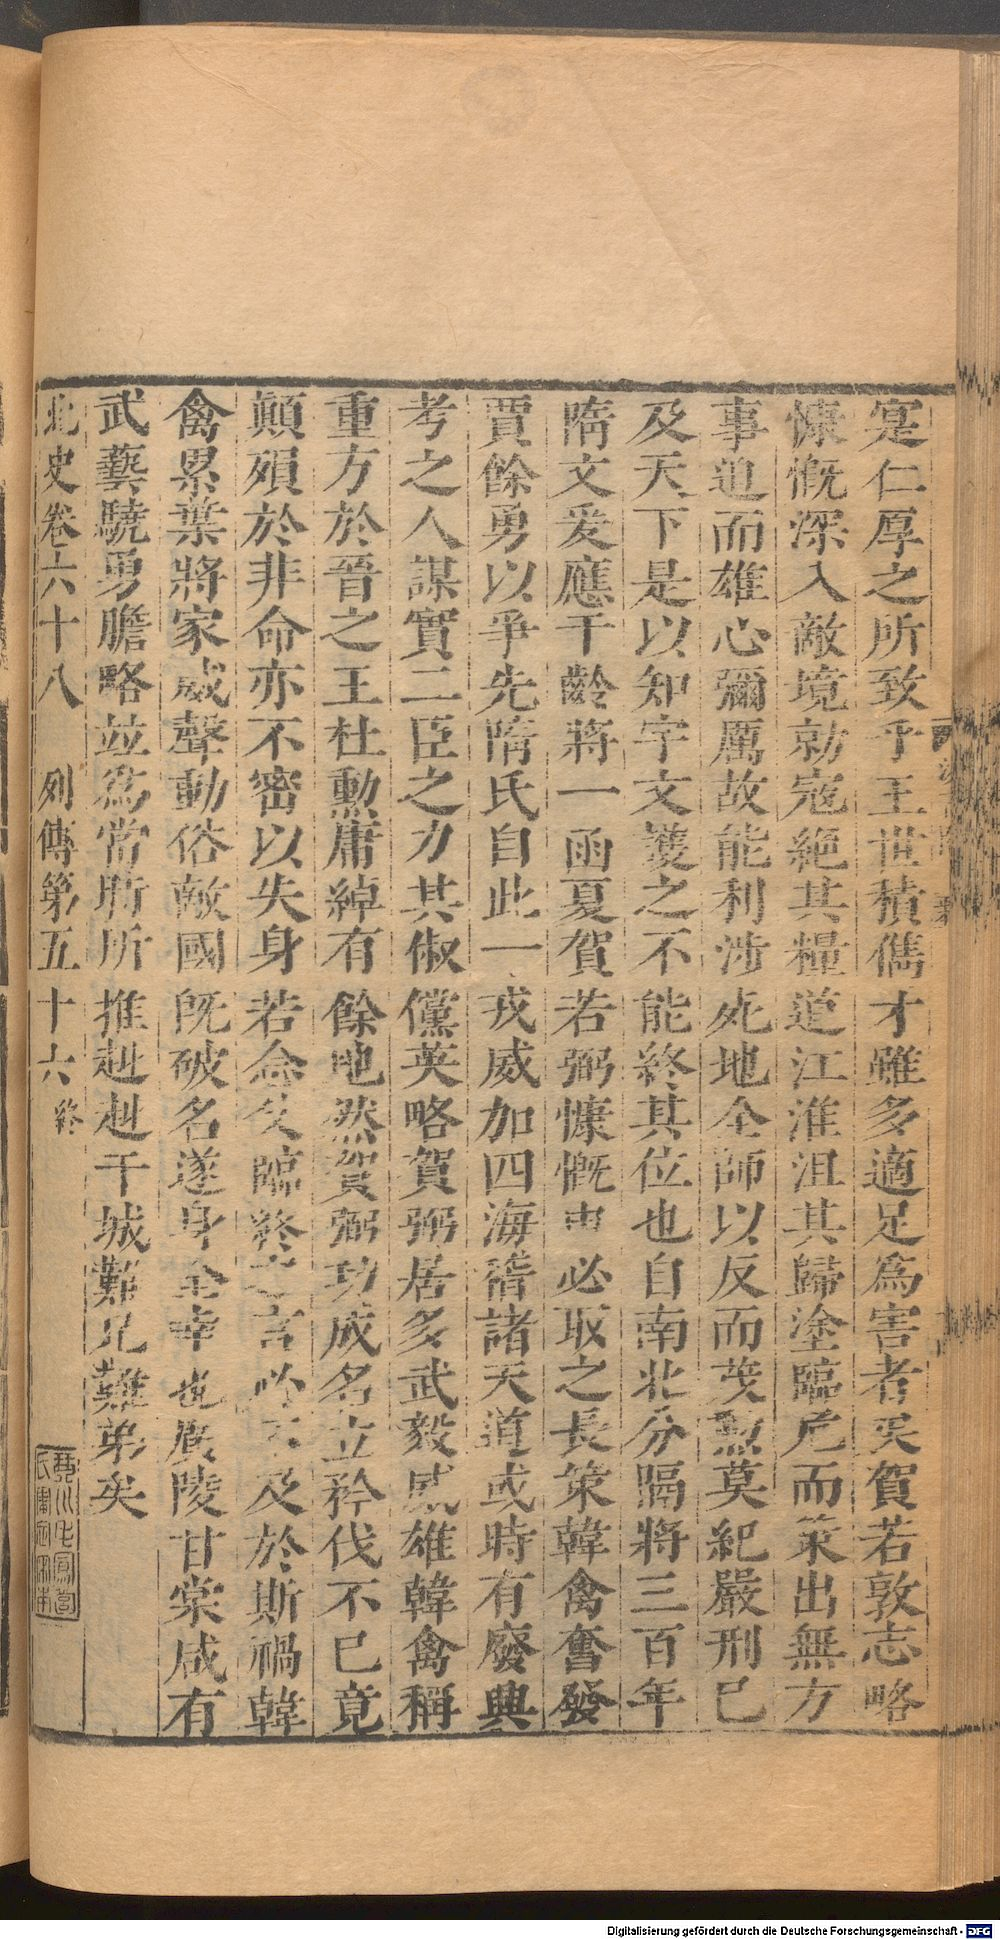 寔仁厚之所致乎王世積儁才雖多適足為害者矣賀若敦志略
慷慨深入敵境勍寇絕其糧道江淮沮其歸塗臨危而策出無方
事迫而雄心彌厲故能利涉死地全師以反而茂勳莫紀嚴刑已
及天下是以知宇文護之不能終其位也自南北分隔將三百年
隋文爰應千齡將一函夏賀若弼慷慨申必取之長策韓禽奮發
賈餘勇以爭先隋氏自此一戎威加四海稽諸天道或時有廢興
考之人謀實二臣之力其俶儻英略賀弼居多武毅威雄韓禽稱
重方於晉之王杜勳庸綽有餘地然賀弼功成名立矜伐不已竟
顛殞於非命亦不密以失身若念父臨終之言必不及於斯禍韓
禽累葉將家威聲動俗敵國既破名遂身全幸也廣陵甘棠咸有
武藝驍勇膽略並為當時所推赳赳干城難兄難弟矣
北史卷六十八 列傳第五十六 終
琴川毛鳳苞
氏審定宋本
Digitalisierung gefördert durch die Deutsche Forschungsgemeinschaft - DFG